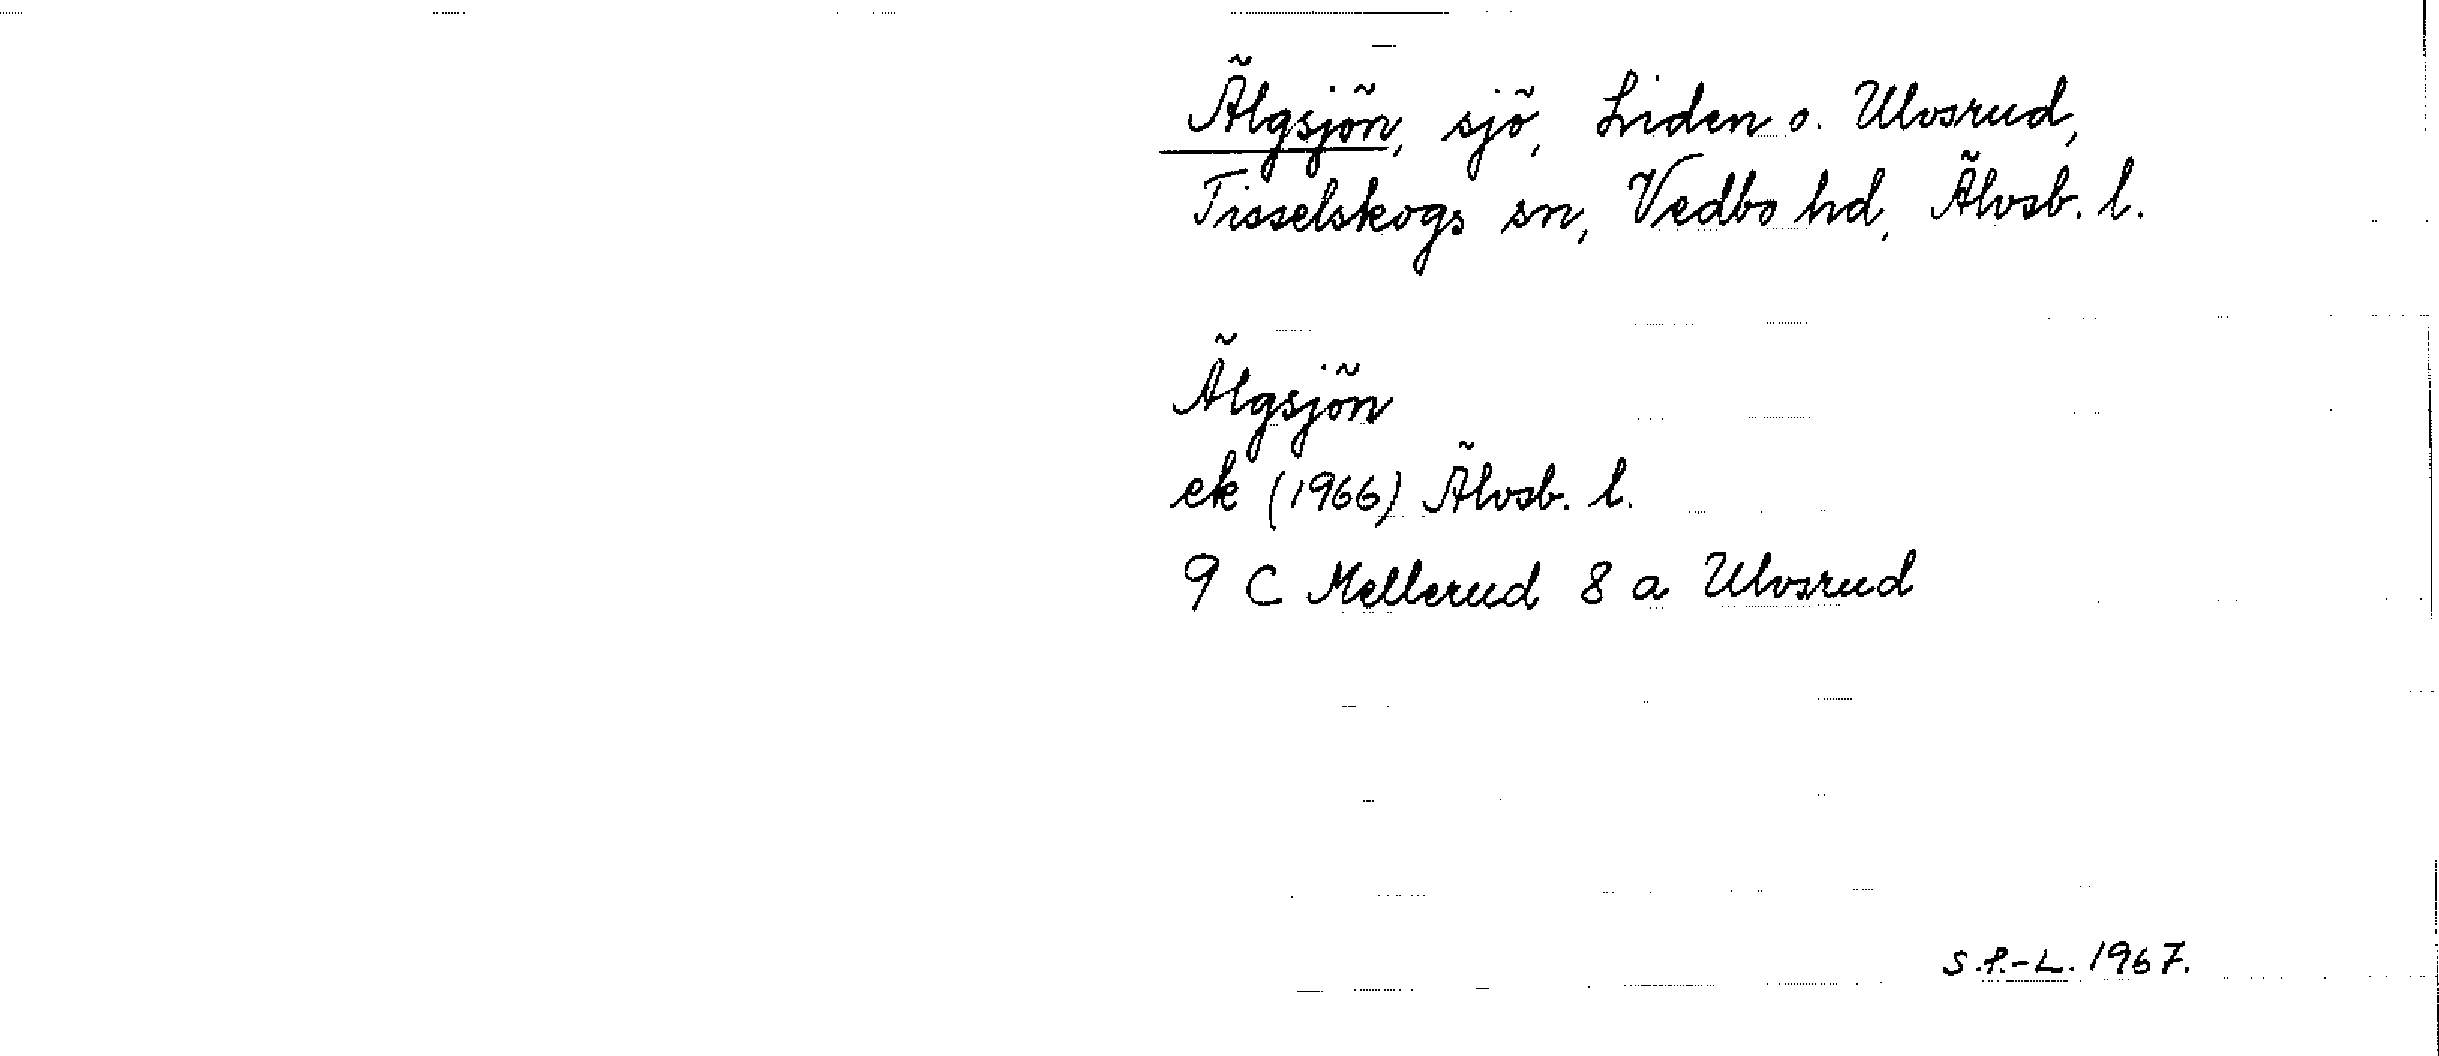 Älgsjön, sjö, Liden o. Ulvsrud,
Tisselskogs sn, Vedbo hd, Älvsb. l.
Älgsjön
ek (1966) Älvsb. l.
9 C Mellerud 8 a Ulvsrud
S.P.-L. 1967.